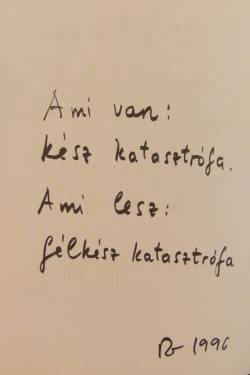 Ami van:
kész katasztrófa.
Ami lesz:
félkész katasztrófa
1996